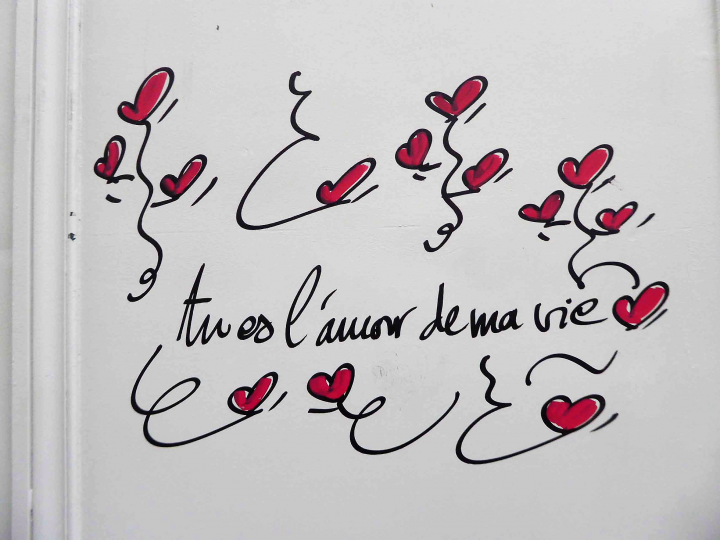 tu es l'amour de ma vie